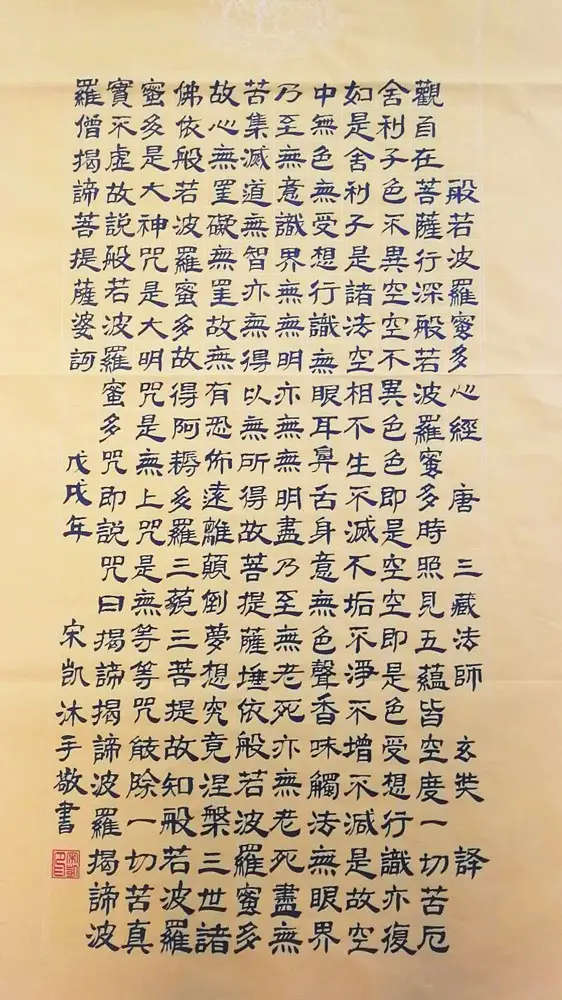 般若波羅蜜多心經 唐 三藏法師 玄奘 譯
觀自在菩薩行深般若波羅蜜多時照見五蘊皆空度一切苦厄
舍利子色不異空空不異色色即是空空即是色受想行識亦復
如是舍利子是諸法空相不生不滅不垢不淨不增不減是故空
中無色無受想行識無眼耳鼻舌身意無色聲香味觸法無眼界
乃至無意識界無無明亦無無明盡乃至無老死亦無老死盡無
苦集滅道無智亦無得以無所得故菩提薩埵依般若波羅蜜多
故心無罣礙無罣故無有恐佈遠離顛倒夢想究竟涅槃三世諸
佛依般若波羅蜜多故得阿耨多羅三藐三菩提故知般若波羅
蜜多是大神咒是大明咒是無上咒是無等等咒能除一切苦真
實不虛故説般若波羅蜜多咒即説咒曰揭諦揭諦波羅揭諦波
羅僧揭諦菩提薩婆訶 戊戌年
宋凱沐手敬書